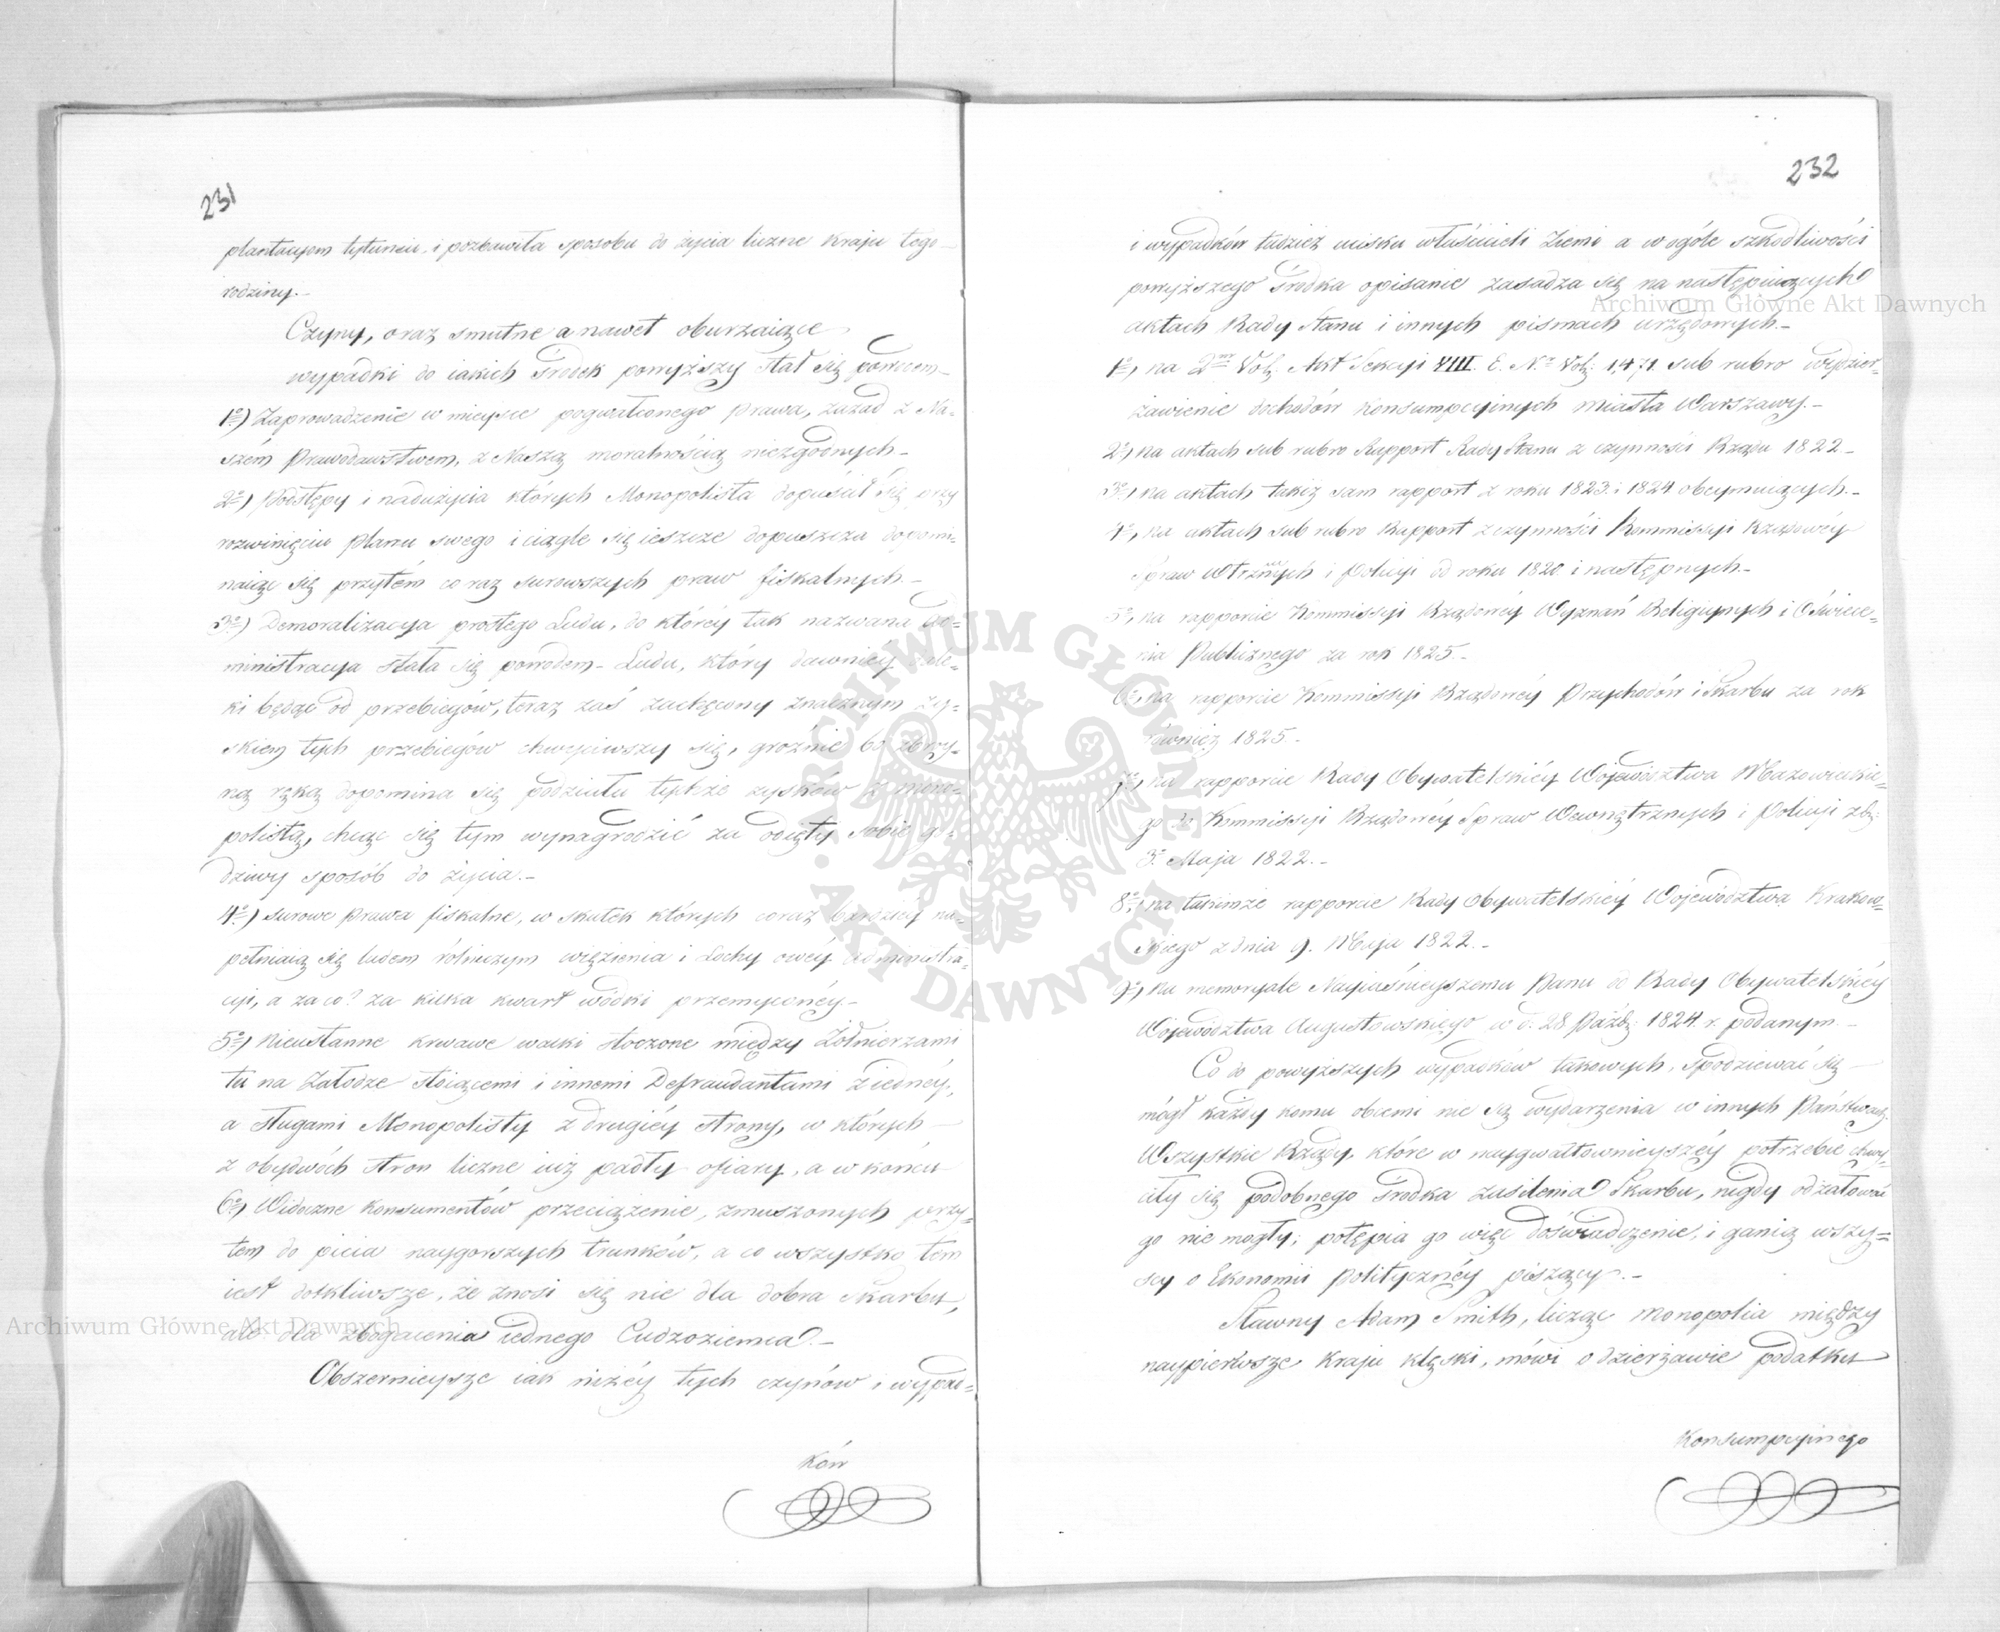 231
plantacyom tytuniu, i pozbawiła sposobu do życia liczne kraju tego
rodziny.—
Czyny, oraz smutne a nawet oburzaiące
wypadki do iakich środek powyższy stał się powodem—
1º) Zaprowadzenie w mieysce pogwałconego prawa, zasad z Na-
szém Prawodawstwem, z Naszą moralnością niezgodnych—
2º) Podstępy i nadużycia których Monopolista dopuścił się przy
rozwinięciu planu swego i ciągle się ieszcze dopuszcza dopomi-
naiąc się przytém coraz surowszych praw fiskalnych.—
3º) Demoralizacya prostego Ludu, do któréy tak nazwana Ad-
ministracya stała się powodem— Ludu, który dawniéy dale-
ki będąc od przebiegów, teraz zaś zachęcony znacznym zy-
skiem tych przebiegów chwyciwszy się, groźnie bo zbroy-
ną ręką dopomina się podziału tychże zysków z mono-
polistą, chcąc się tym wynagrodzić za odięty sobie go-
dziwy sposób do życia.—
4º) Surowe prawa fiskalne, w skutek których coraz bardziéy na-
pełniaią się ludem rólniczym więzienia i Lochy owéy administra-
cyi, a za co? za kilka kwart wódki przemyconéy.—
5º) Nieustanne krwawe walki stoczone między Żołnierzami
tu na Załodze stoiącemi i innemi Defraudantami z iednéy,
a sługami Monopolisty z drugiéy strony, w których—
z obydwóch stron liczne iuż padły ofiary, a w końcu
6º) Widoczne Konsumentów przeciążenie, zmuszonych przy-
tem do picia naygorszych trunków, a co wszystko tem
iest dotkliwsze, że znosi się nie dla dobra Skarbu,
ale dla zbogacenia iednego Cudzoziemca.—
Obszernieysze iak niżéy tych czynów i wypad-
ków
232
i wypadków tudzież ucisku właścicieli Ziemi a w ogóle szkodliwości
powyższego środka opisanie zasadza się na następuiących
aktach Rady Stanu i innych pismach urzędowych.—
1º, na 2m Vol: Akt Sekcyi VIII. E. Nr Vol: 1,471. sub rubro wydzier-
żawienie dochodów konsumpcyinych miasta Warszawy.—
2º, na aktach sub rubro Rapport Rady Stanu z czynności Rządu 1822.—
3º, na aktach takiż sam rapport z roku 1823. i 1824 obeymuiących.—
4º, na aktach sub rubro Rapport z czynności Kommissyi Rządowéy
Spraw Wtrznych i Policyi od roku 1820. i następnych.—
5º, na rapporcie Kommissyi Rządowéy Wyznań Religiynych i Oświece-
nia Publicznego za rok 1825.—
6º, na rapporcie Kommissyi Rządowéy Przychodów i Skarbu za rok
również 1825.—
7º, na rapporcie Rady Obywatelskiéy Województwa Mazowieckie-
go do Kommissyi Rządowéy Spraw Wewnętrznych i Policyi z d.
3º Maja 1822.—
8º, na takimże rapporcie Rady Obywatelskiéy Województwa Krakow-
skiego z dnia 9. Maja 1822.—
9º, na memoryale Nayiaśnieyszemu Panu od Rady Obywatelskiéy
Województwa Augustowskiego w d. 28 Paźdz: 1824. r. podanym.—
Co do powyższych wypadków takowych, spodziewać się—
mógł każdy komu obcemi nie są wydarzenia w innych Państwach.
Wszystkie Rządy, które w naygwałtownieyszéy potrzebie chwy-
ciły się podobnego środka zasilenia Skarbu, nigdy odżałować
go nie mogły; potępia go więc doświadczenie, i ganią wszy-
scy o Ekonomii politycznéy piszący.—
Sławny Adam Smith, licząc monopolia między
naypierwsze kraju klęski, mówi o dzierżawie podatku
Konsumpcyinego
Archiwum Główne Akt Dawnych
Archiwum Główne Akt Dawnych
ARCHIWUM GŁÓWNE · AKT DAWNYCH ·